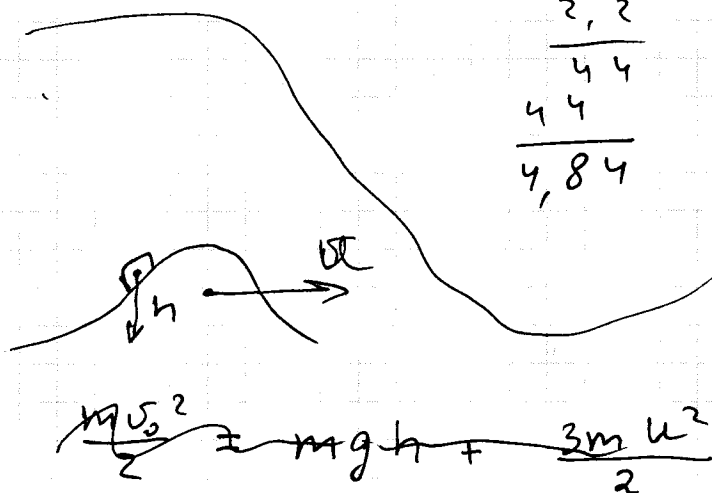 2,2
44
44
4,84
h
mv₀²/2 = mgh + 3mu²/2